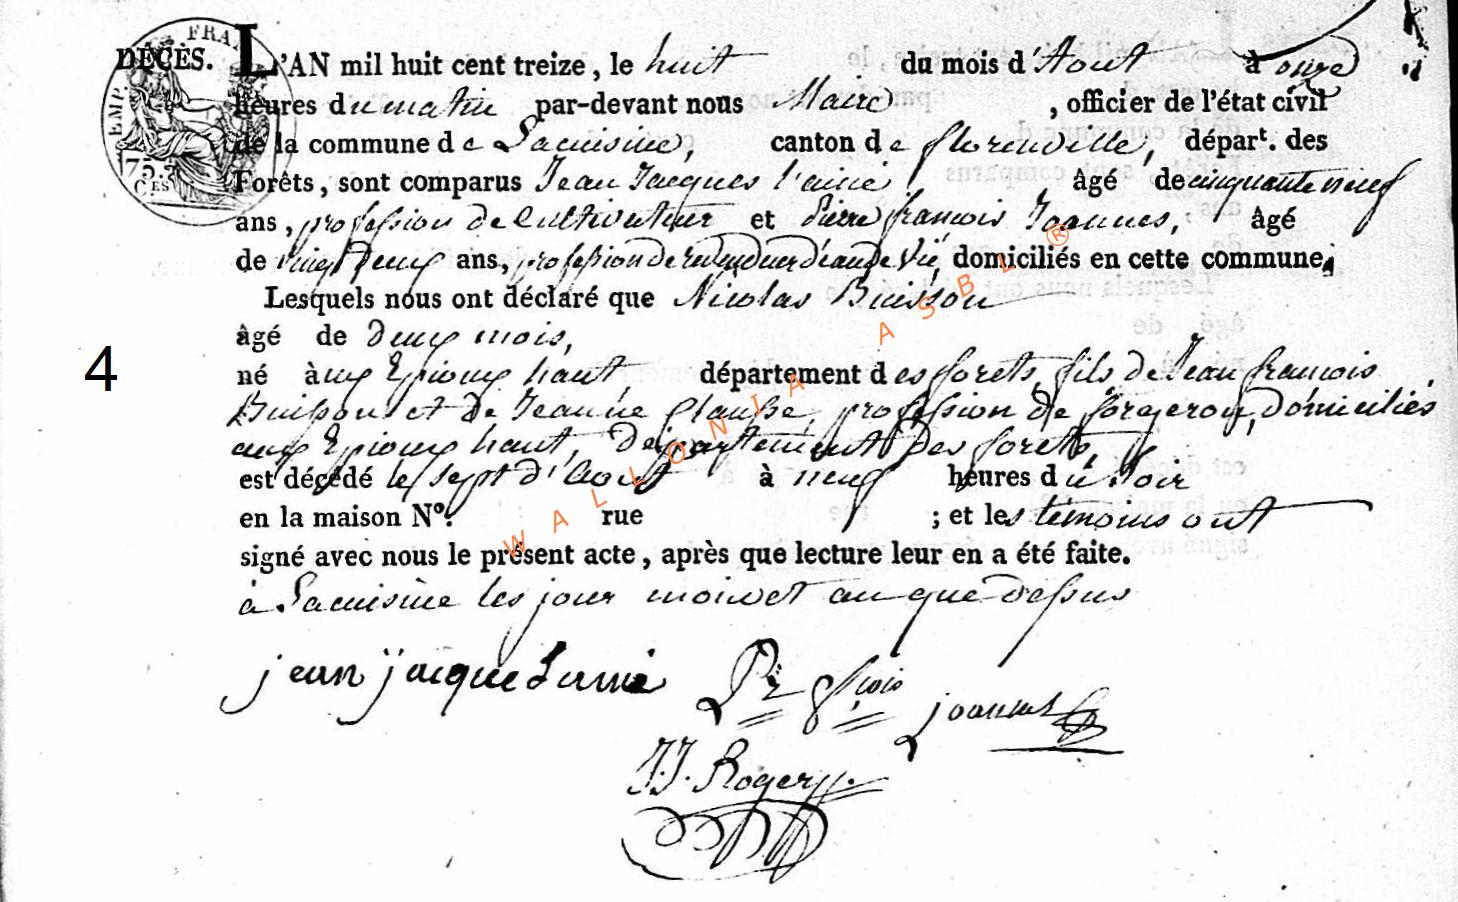 FRAN
EMP.
75.
CES
DÉCÈS. L'AN mil huit cent treize, le huit du mois d'Aout à onze
heures du matin par-devant nous Maire, officier de l'état civil
de la commune de Lacuisine, canton de florenville, départ. des
Forêts, sont comparus Jean Jacques l'ainé, âgé de cinquante neuf
ans, profession de Cultivateur et Pierre françois Joannes, âgé
de vingt deux ans, profession de revendeur d'eau de vie, domiciliés en cette commune,
Lesquels nous ont déclaré que Nicolas Buisson
âgé de deux mois,
4
né à aux Epioux haut département des forets fils de Jean francois
Buisson et de Jeanne Clausse, profession de forgeron, domiciliés
aux Epioux haut, Département des forets,
est décédé le sept d'Aout à neuf heures du Soir
en la maison N°. rue ; et les témoins ont
signé avec nous le présent acte, après que lecture leur en a été faite.
à Lacuisine les jour mois et an que dessus
jean jacque
Pre fçois joannes
J.J. Rogery.
WALLONIA ASBL ®